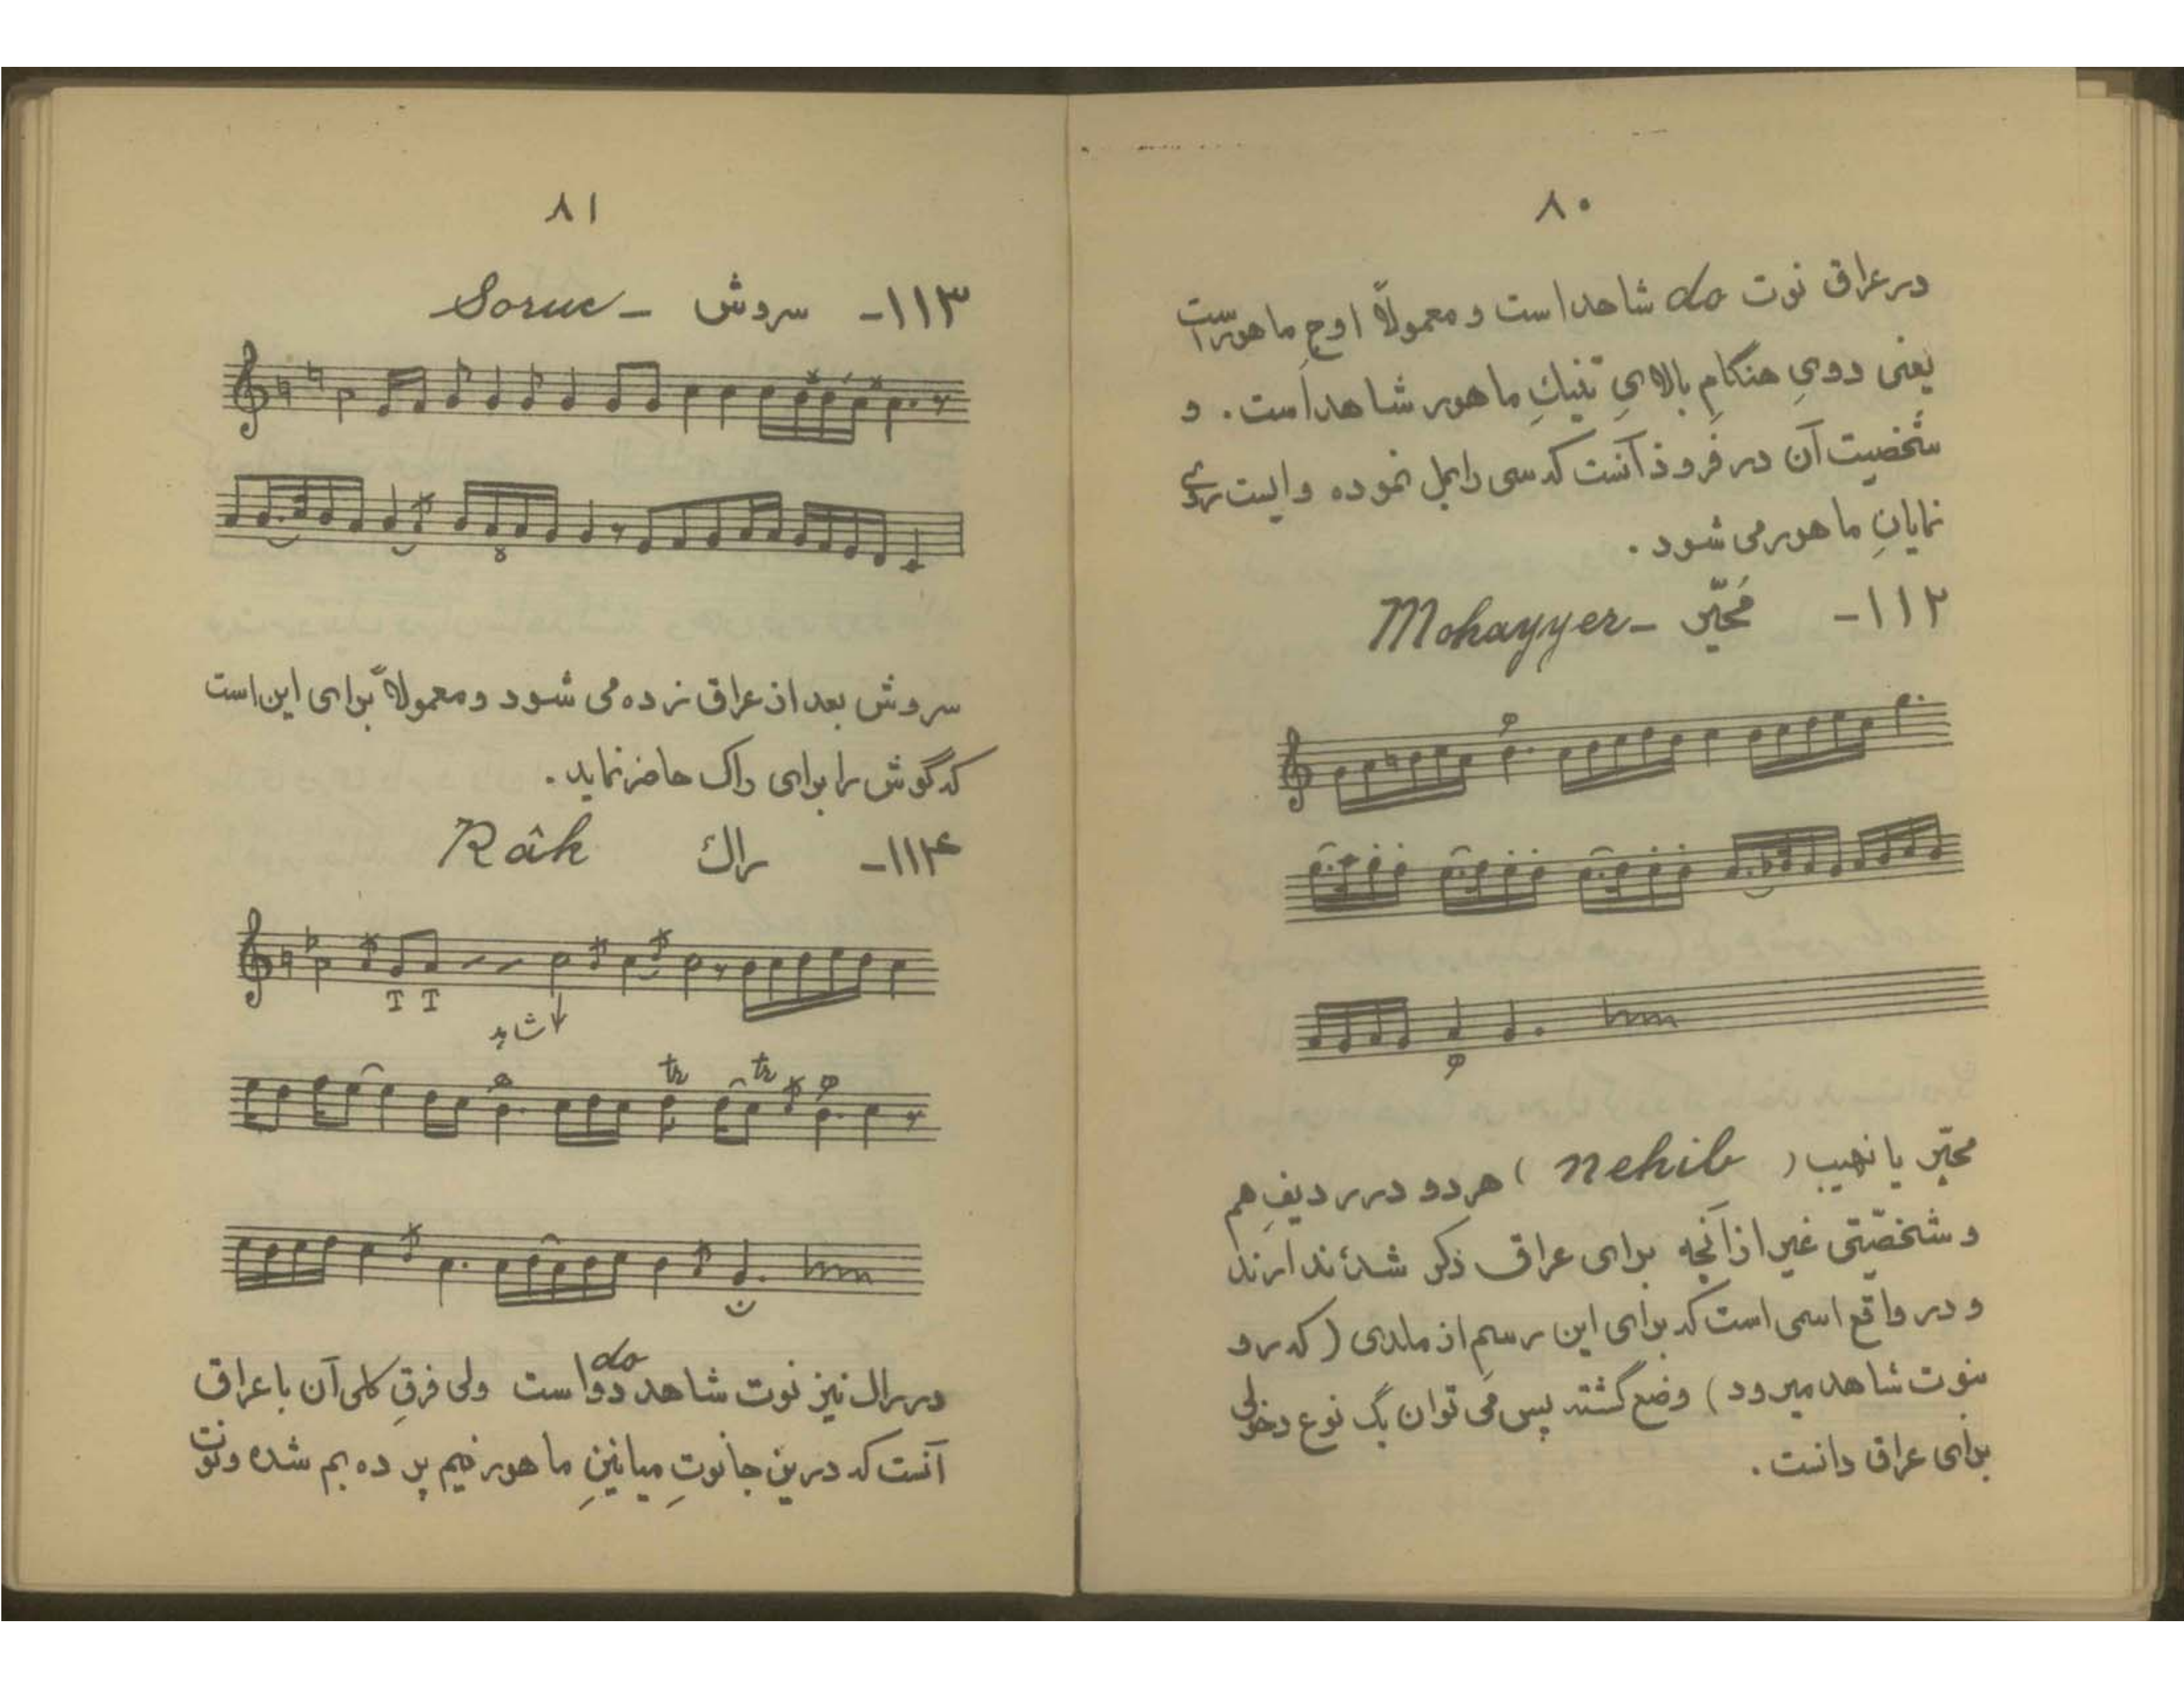 ۸۰
در عراق نوت do شاهد است و معمولاً اوجِ ماهور است
یعنی دویِ هنگامِ بالایِ تنیکِ ماهور شاهد است. و
شخصیت آن در فرود آنست که سی را بمل نموده و ایست روی
نمایانِ ماهور می شود.
۱۱۲- مُحیّر - Mohayyer
محیّر یا نهیب (nehib) هر دو در ردیفِ هم
و شخصیّتی غیر از آنچه برای عراق ذکر شده ندارند
و در واقع اسمی است که برای این رسم از ملدی (که رو
بنوت شاهد میرود) وضع گشته پس می توان یک نوع دخولی
برای عراق دانست.
۸۱
۱۱۳- سروش - Soruc
8
سروش بعد از عراق زده می شود و معمولاً برای این است
که گوش را برای راک حاضر نماید.
۱۱۴- راک Râk
I I
شاهد
tr tr
do
در راک نیز نوت شاهد دو است ولی فرقِ کلی آن با عراق
آنست که درین جا نوتِ میانینِ ماهور نیم پرده بم شده و نوت